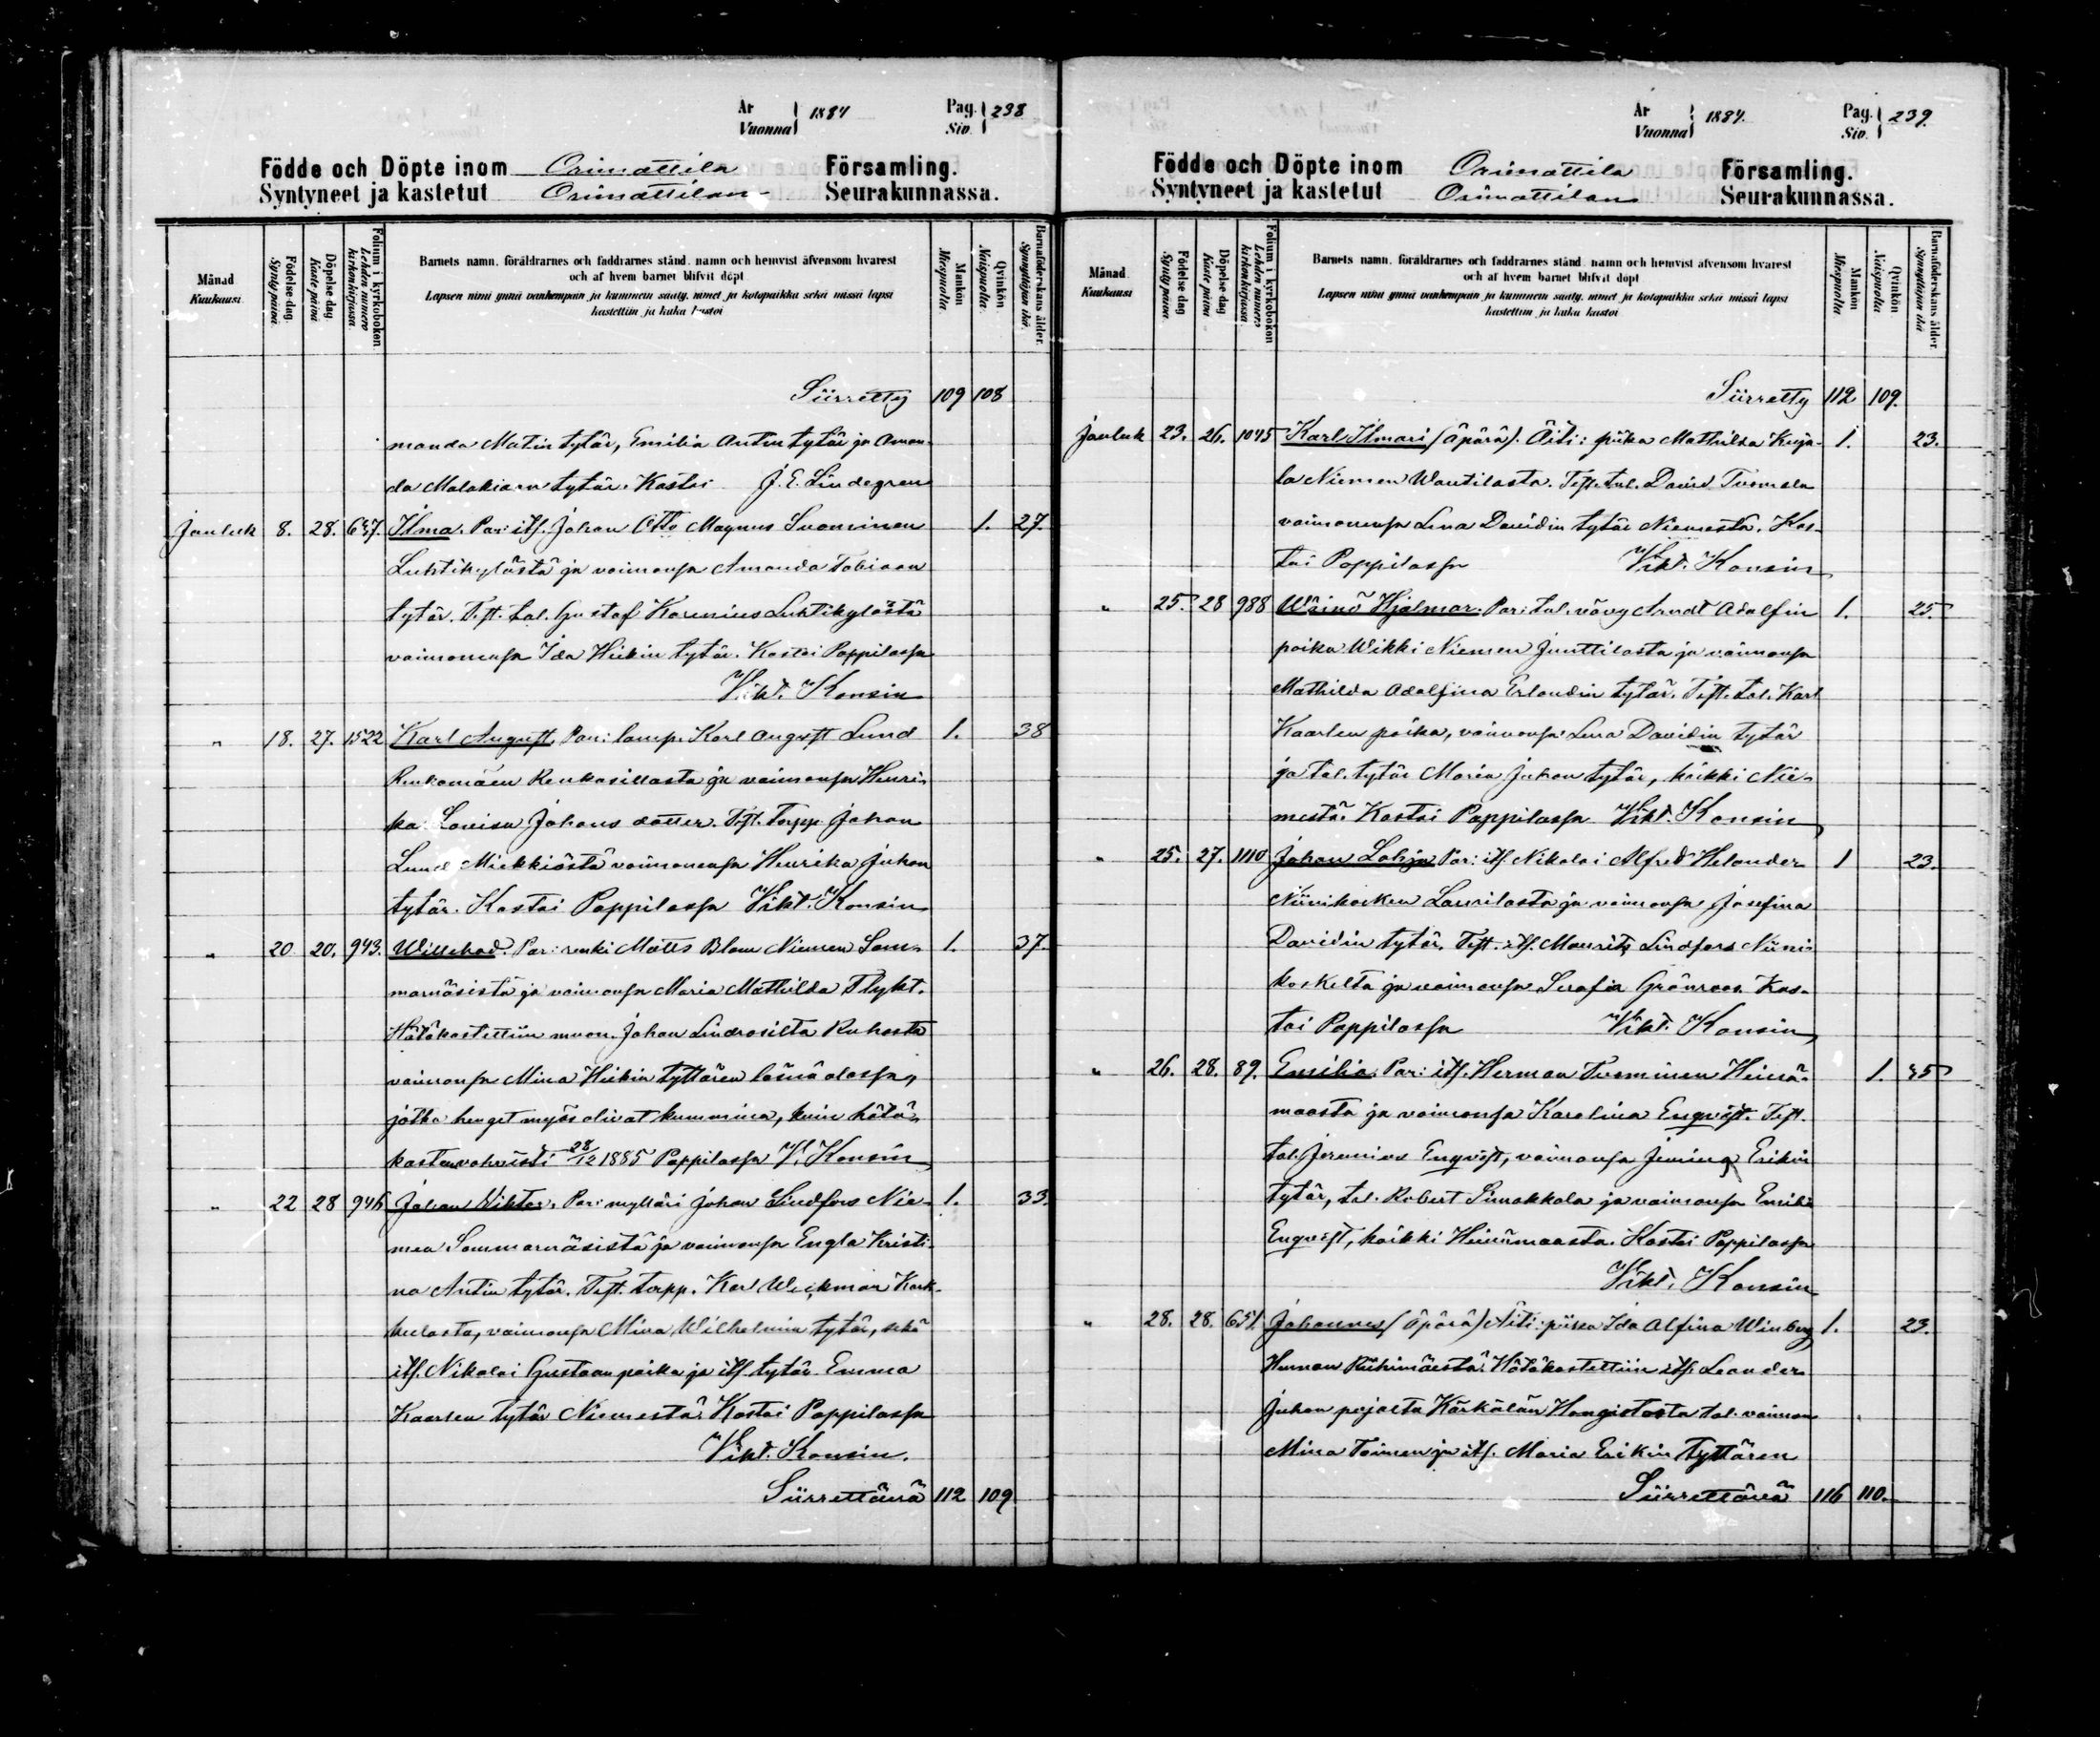 År 1884 Pag. 238
Vuonna Siv.
Födde och Döpte inom Orimattila Församling.
Syntyneet ja kastetut Orimattilan Seurakunnassa.
Månad Kuukausi
Födelse dag. Synty päivä.
Döpelse dag Kaste päivä
Folium i kyrkoboken Lehden numero kirkonkirjassa.
Barnets namn, föräldrarnes och faddrarnes stånd, namn och hemvist äfvensom hvarest
och af hvem barnet blifvit döpt
Lapsen nimi ynnä vanhempain ja kummein sääty, nimet ja kotopaikka sekä missä lapsi
kastettiin ja kuka kastoi
Mankön Miespuolia.
Qvinkön Naispuolia.
Barnaföderskans ålder. Synnyttäjän ikä.
Siirretty 109 108
manda Matin tytär, Emilia Antin tytär ja Aman-
da Malakiaan tytär. Kastoi J. E. Lindegren
Jouluk 8. 28. 637. Ilma. Par: its. Johan Otto Magnus Suominen 1. 27.
Luhtikylästä ja vaimonsa Amanda Tobiaan
tytär. Test. tal. Gustaf Karenius Luhtikylästä
vaimonensa Ida Heikin tytär. Kastoi Pappilassa
Vikt. Konsin
" 18. 27. 1522 Karl August. Par: lamp. Karl August Lund 1. 38
Renkomäen Renkasillasta ja vaimonsa Henri-
ka Lovisa Johans dotter. Test. Torpp. Johan
Lund Mickkiöstä vaimonensa Henrika Juhan
tytär. Kastoi Pappilassa Vikt. Konsin
" 20. 20. 943. Willehad. Par: renki Matts Blom Niemen Som- 1. 37.
marnäsistä ja vaimonsa Maria Mathilda Flykt.
Hätäkastettiin muon. Johan Lindrosilta
vaimonsa Mina Heikin tyttären läsnä olossa,
jotka henget myös olivat kummina, kuin hätä-
kaste vahvisti 28/12 1885 Pappilassa V. Konsin
" 22 28 946 Johan Viktor. Par: mylläri Johan Lindfors Nie- 1. 33.
men Sommarnäsistä ja vaimonsa Engla Kristi-
na Antin tytär. Test. torpp. Karl Weckman Kark-
kulasta, vaimonsa Mina Wilhelmin tytär, sekä
its. Nikolai Gustaan poika ja its. tytär Emma
Kaarlen tytär Niemestä. Kastoi Pappilassa
Vikt. Konsin.
Siirrettävä 112 109
År 1884. Pag. 239.
Vuonna Siv.
Födde och Döpte inom Orimattila Församling.
Syntyneet ja kastetut Orimattilan Seurakunnassa.
Månad. Kuukausi
Födelse dag Synty päivä.
Döpelse dag Kaste päivä
Folium i kyrkoboken Lehden numero kirkonkirjassa.
Barnets namn, föräldrarnes och faddrarnes stånd, namn och hemvist äfvensom hvarest
och af hvem barnet blifvit döpt
Lapsen nimi ynnä vanhempain ja kummein sääty, nimet ja kotopaikka sekä missä lapsi
kastettiin ja kuka kastoi
Mankön Miespuolia
Qvinkön Naispuolia
Barnaföderskans ålder. Synnyttäjän ikä
Siirretty 112 109.
Jouluk 23. 26. 1045 Karl Ilmari (äpärä). Äiti: piika Mathilda Kuja- 1. 23.
la Niemen Wantilasta. Test. tal. David Tuomela
vaimonensa Lena Davidin tytär Niemestä. Kas-
toi Pappilassa Vikt. Konsin
" 25. 28 988 Wäinö Hjalmar. Par: tal. vävy Arndt Adolfin 1. 25.
poika Wikki Niemen Junttilasta ja vaimonsa
Mathilda Adolfina Erlandin tytär. Test. tal. Karl
Kaarlen poika, vaimonsa Lena Davidin tytär
ja tal. tytär Maria Juhan tytär, kaikki Nie-
mestä. Kastoi Pappilassa Vikt. Konsin
" 25. 27. 1110 Johan Lohja Par: its. Nikolai Alfred Helander 1 23.
Niinikosken Laurilasta ja vaimonsa Josefina
Davidin tytär. Test. its. Maurits Lindfors Niini-
koskelta ja vaimonsa Serafia Grönroos. Kas-
toi Pappilassa Vikt. Konsin
" 26. 28. 89. Emilia. Par: its. Herman Tuominen Heinä- 1. 35
maasta ja vaimonsa Karolina Enqvist. Test.
tal. Jeremias Enqvist, vaimonsa Erikin
tytär, tal. Robert Simakkala ja vaimonsa Emilia
Enqvist, kaikki Heinämaasta. Kastoi Pappilassa
Vikt. Konsin
" 28. 28. 651 Johannes (äpärä) Äiti: piika Ida Alfina Winberg 1. 23.
Hennan Riihimäestä. Hätäkastettiin its. Leander
Juhan pojalta Kärkälän Hongistosta tal. vaimon
Mina Toimen ja its. Maria Erikin tyttären
Siirrettävä 116 110.